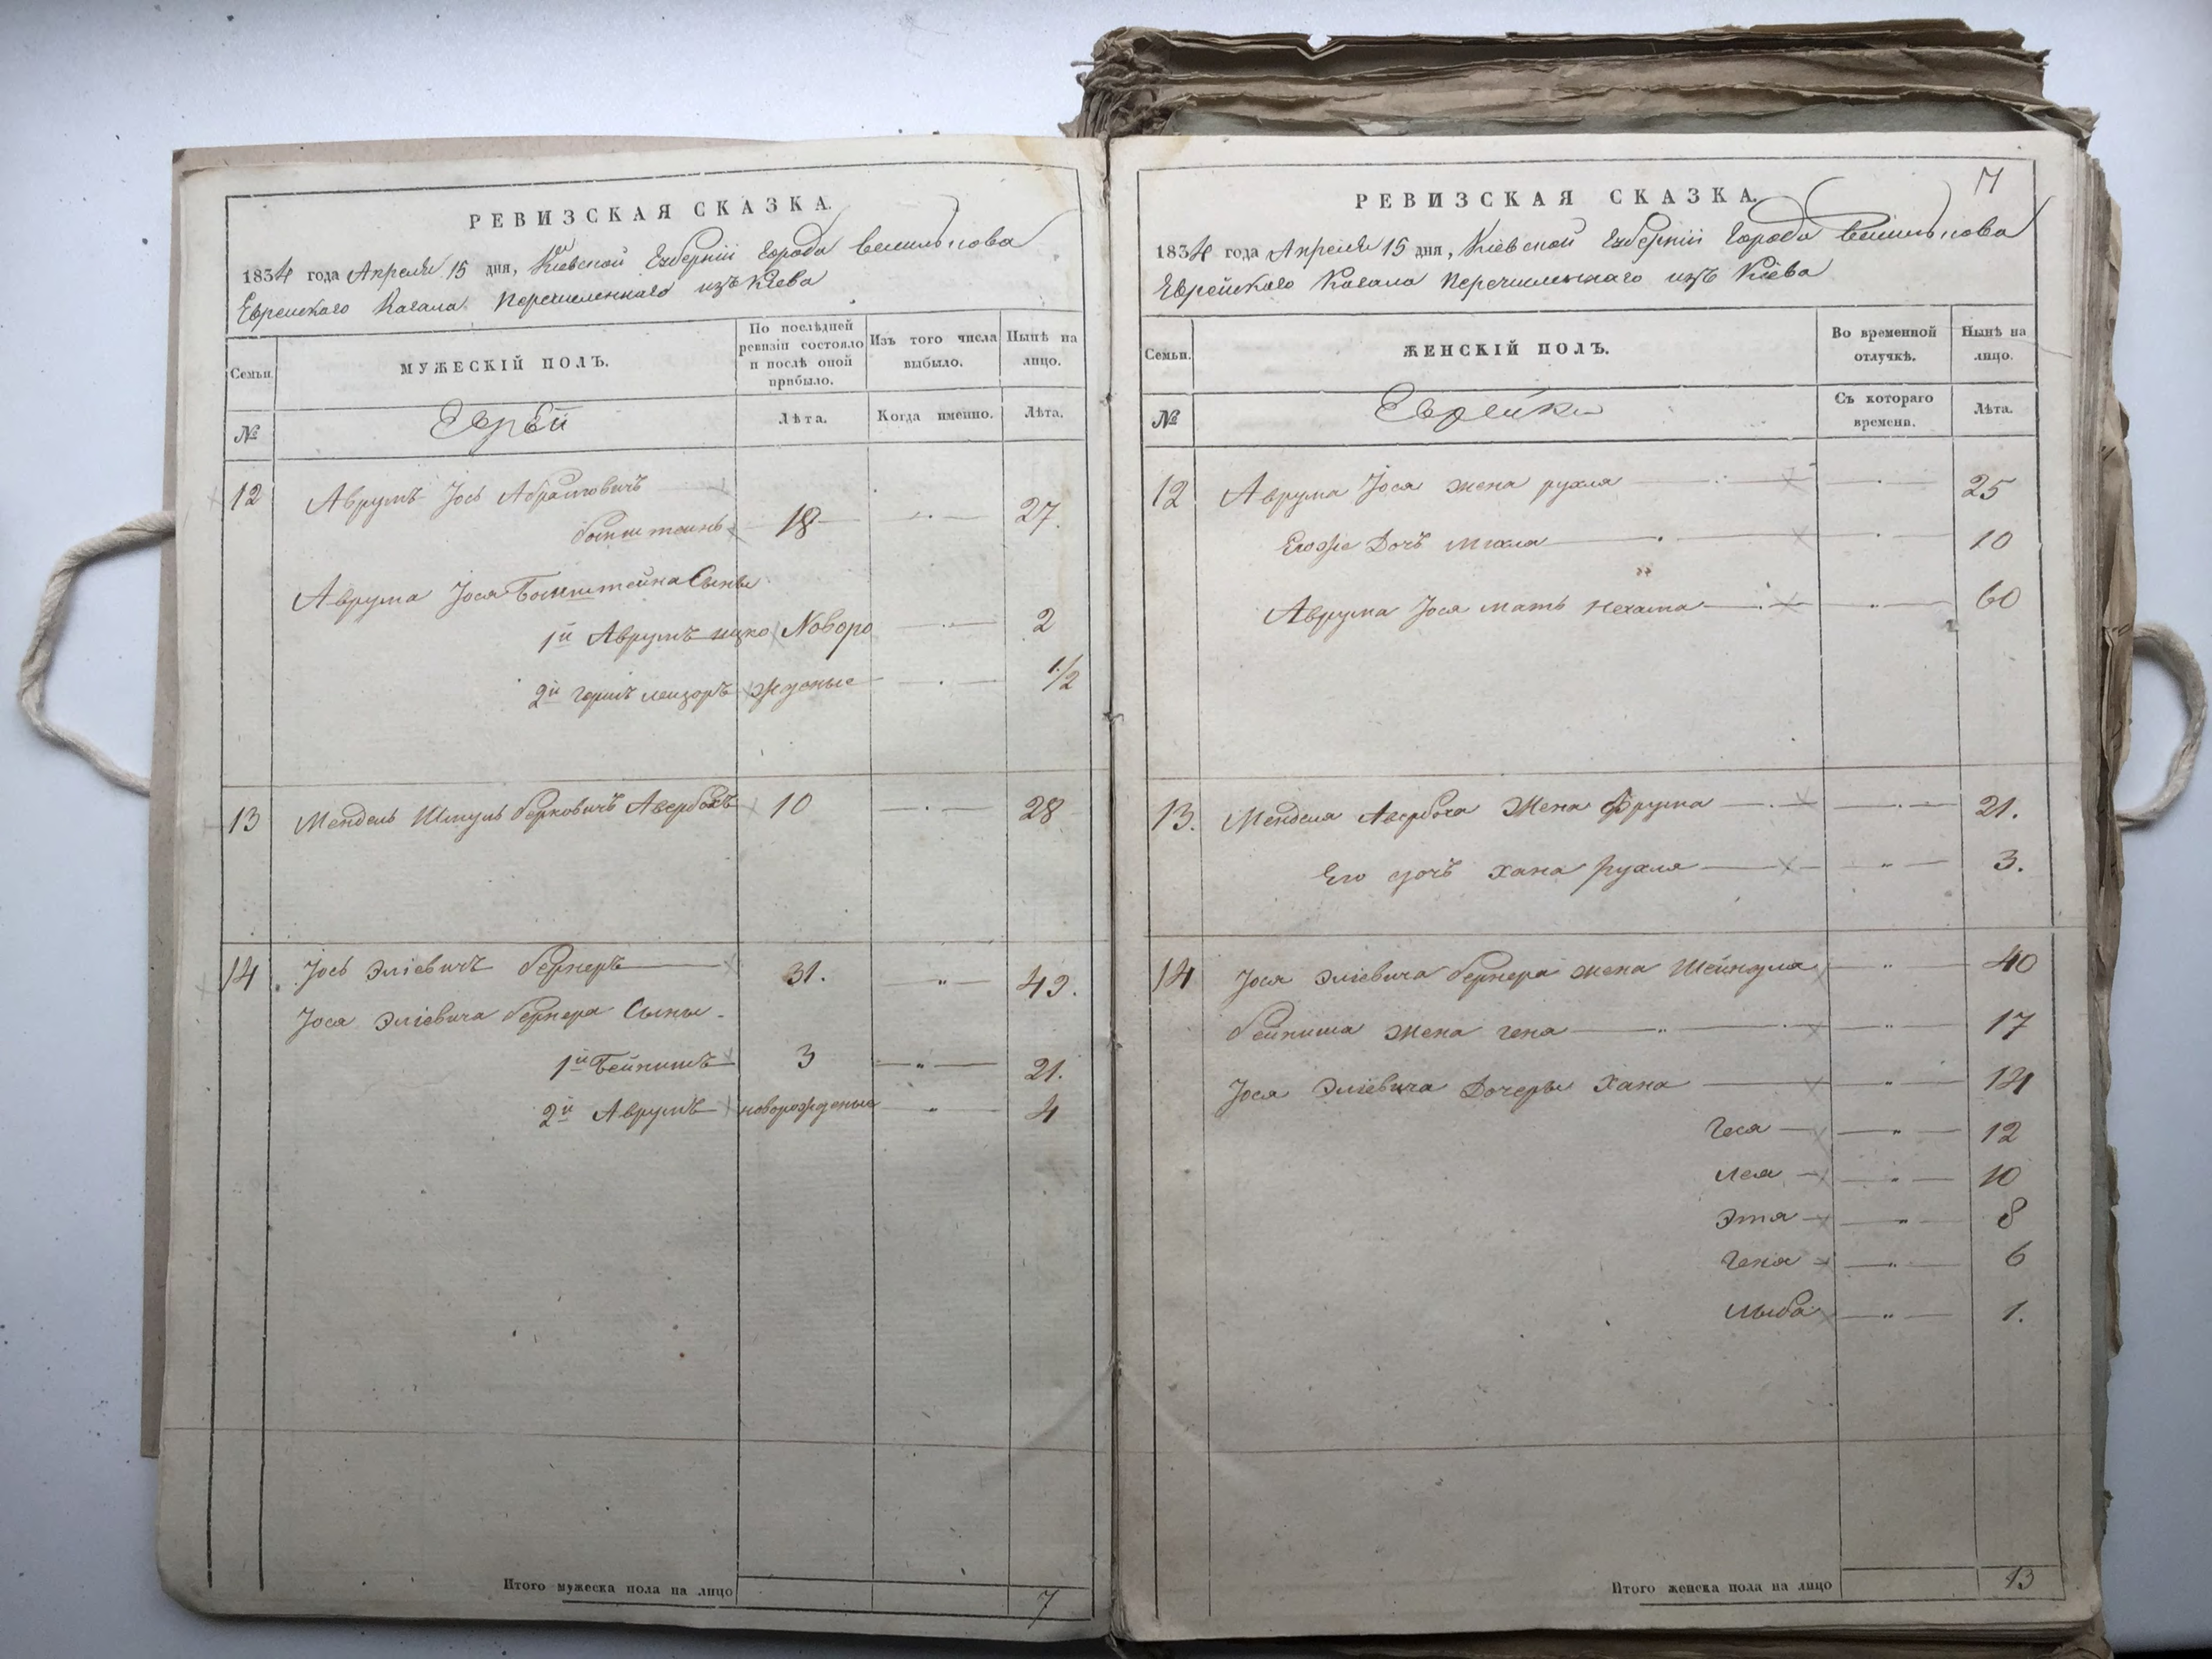 РЕВИЗСКАЯ СКАЗКА.
1834 года Апреля 15 дня, Кіевской Губерніи Города Василькова
Еврейского Кагала Перечисленнаго изъ Кіева
Семьи.
МУЖЕСКІЙ ПОЛЪ.
По послѣдней ревизіи состояло и послѣ оной прибыло.
Изъ того числа выбыло.
Нынѣ на лицо.
№
Еврѣи
Лѣта.
Когда именно.
Лѣта.
12 Аврумъ Іось Абрамовичъ
18 27.
Аврума Іося Сыны
1й Аврумъ ицко Новоро 2
2й лейзоръ жденые 1/2
13 Мендель Шмуль берковичъ Авербахъ 10 28
14 Іось Эліевичъ бернеръ 31. 49.
Іося Эліевича бернера Сыны
1й Бейнишъ 3 21.
2й Аврумъ новорожденые 4
Итого мужеска пола на лицо 7
РЕВИЗСКАЯ СКАЗКА.
7
1834 года Апреля 15 дня, Кіевской Губерніи Города Василькова
Еврейского Кагала Перечисленнаго изъ Кіева
Семьи.
ЖЕНСКІЙ ПОЛЪ.
Во временной отлучкѣ.
Нынѣ на лицо.
№
Еврейки
Съ котораго времени.
Лѣта.
12 Аврума Іося жена рухля 25
Егоже Дочъ 10
Аврума Іося мать нехама 60
13. Менделя Авербаха Жена Фрума 21.
Его дочъ хана рухля 3.
14 Іося Эліевича бернера жена Шейндля 40
бейниша жена гена 17
Іося Эліевича Дочеры Хана 14
Геся 12
Лея 10
Этя 8
Геня 6
Лыба 1.
Итого женска пола на лицо 13